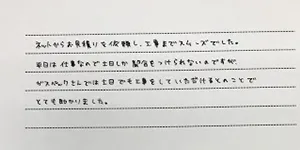 ネットからお見積りを依頼し、工事までスムーズでした。
平日は仕事なので土日しか都合をつけられないのですが、
ガスペックさんでは土日でも工事をしていただけるとのことで
とても助かりました。